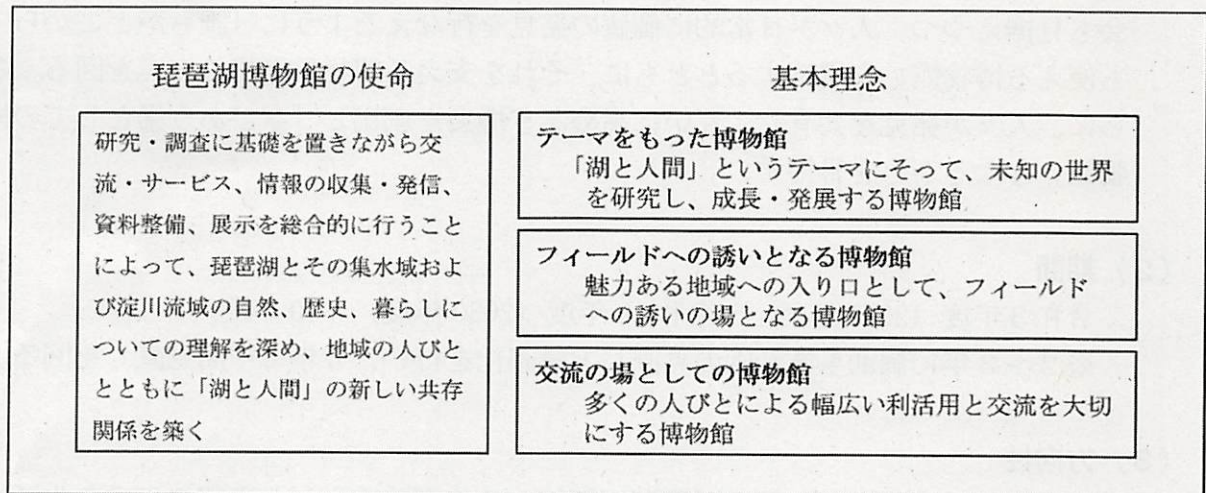 琵琶湖博物館の使命
研究・調査に基礎を置きながら交
流・サービス、情報の収集・発信、
資料整備、展示を総合的に行うこと
によって、琵琶湖とその集水域およ
び淀川流域の自然、歴史、暮らしに
ついての理解を深め、地域の人びと
とともに「湖と人間」の新しい共存
関係を築く
基本理念
テーマをもった博物館
「湖と人間」というテーマにそって、未知の世界
を研究し、成長・発展する博物館
フィールドへの誘いとなる博物館
魅力ある地域への入り口として、フィールド
への誘いの場となる博物館
交流の場としての博物館
多くの人びとによる幅広い利活用と交流を大切
にする博物館